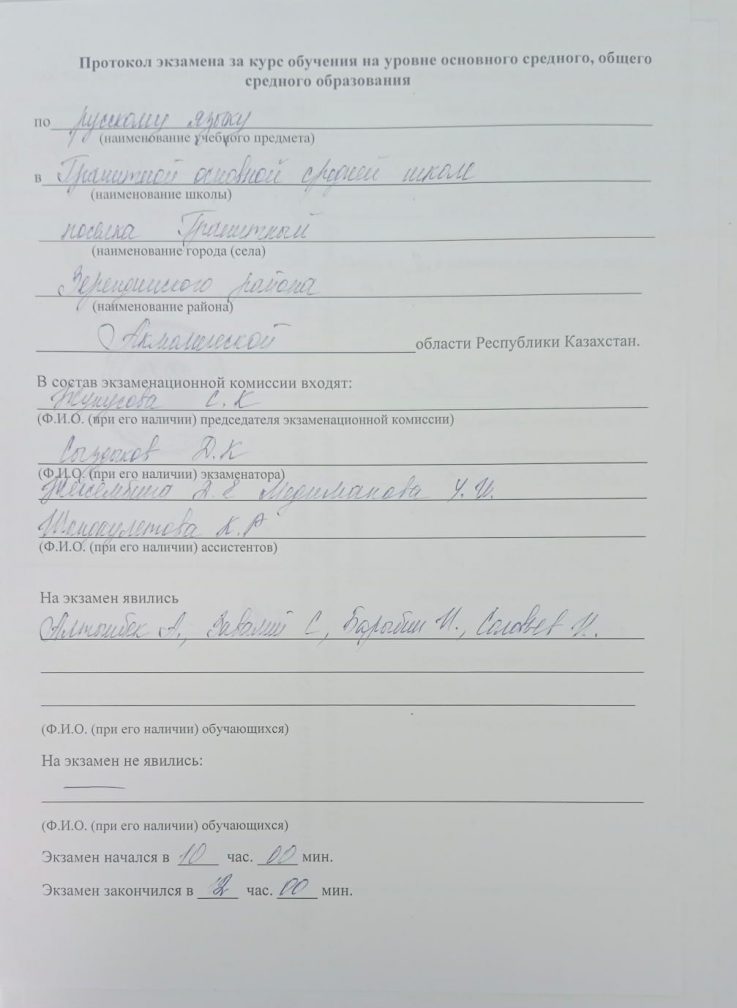 Протокол экзамена за курс обучения на уровне основного среднего, общего
среднего образования
по русскому языку
(наименование учебного предмета)
в Гранитной основной средней школе
(наименование школы)
поселка Гранитный
(наименование города (села)
Зерендинского района
(наименование района)
Акмолинской области Республики Казахстан.
В состав экзаменационной комиссии входят:
С. К
(Ф.И.О. (при его наличии) председателя экзаменационной комиссии)
Сыздыков Д.К
(Ф.И.О. (при его наличии) экзаменатора)
Жейсембина Д. Е Медиманова У. И.
К. А
(Ф.И.О. (при его наличии) ассистентов)
На экзамен явились
Алтынбек А, Завалий С, Барыбин И., Соловьев И.
(Ф.И.О. (при его наличии) обучающихся)
На экзамен не явились:
—
(Ф.И.О. (при его наличии) обучающихся)
Экзамен начался в 10 час. 00 мин.
Экзамен закончился в 12 час. 00 мин.